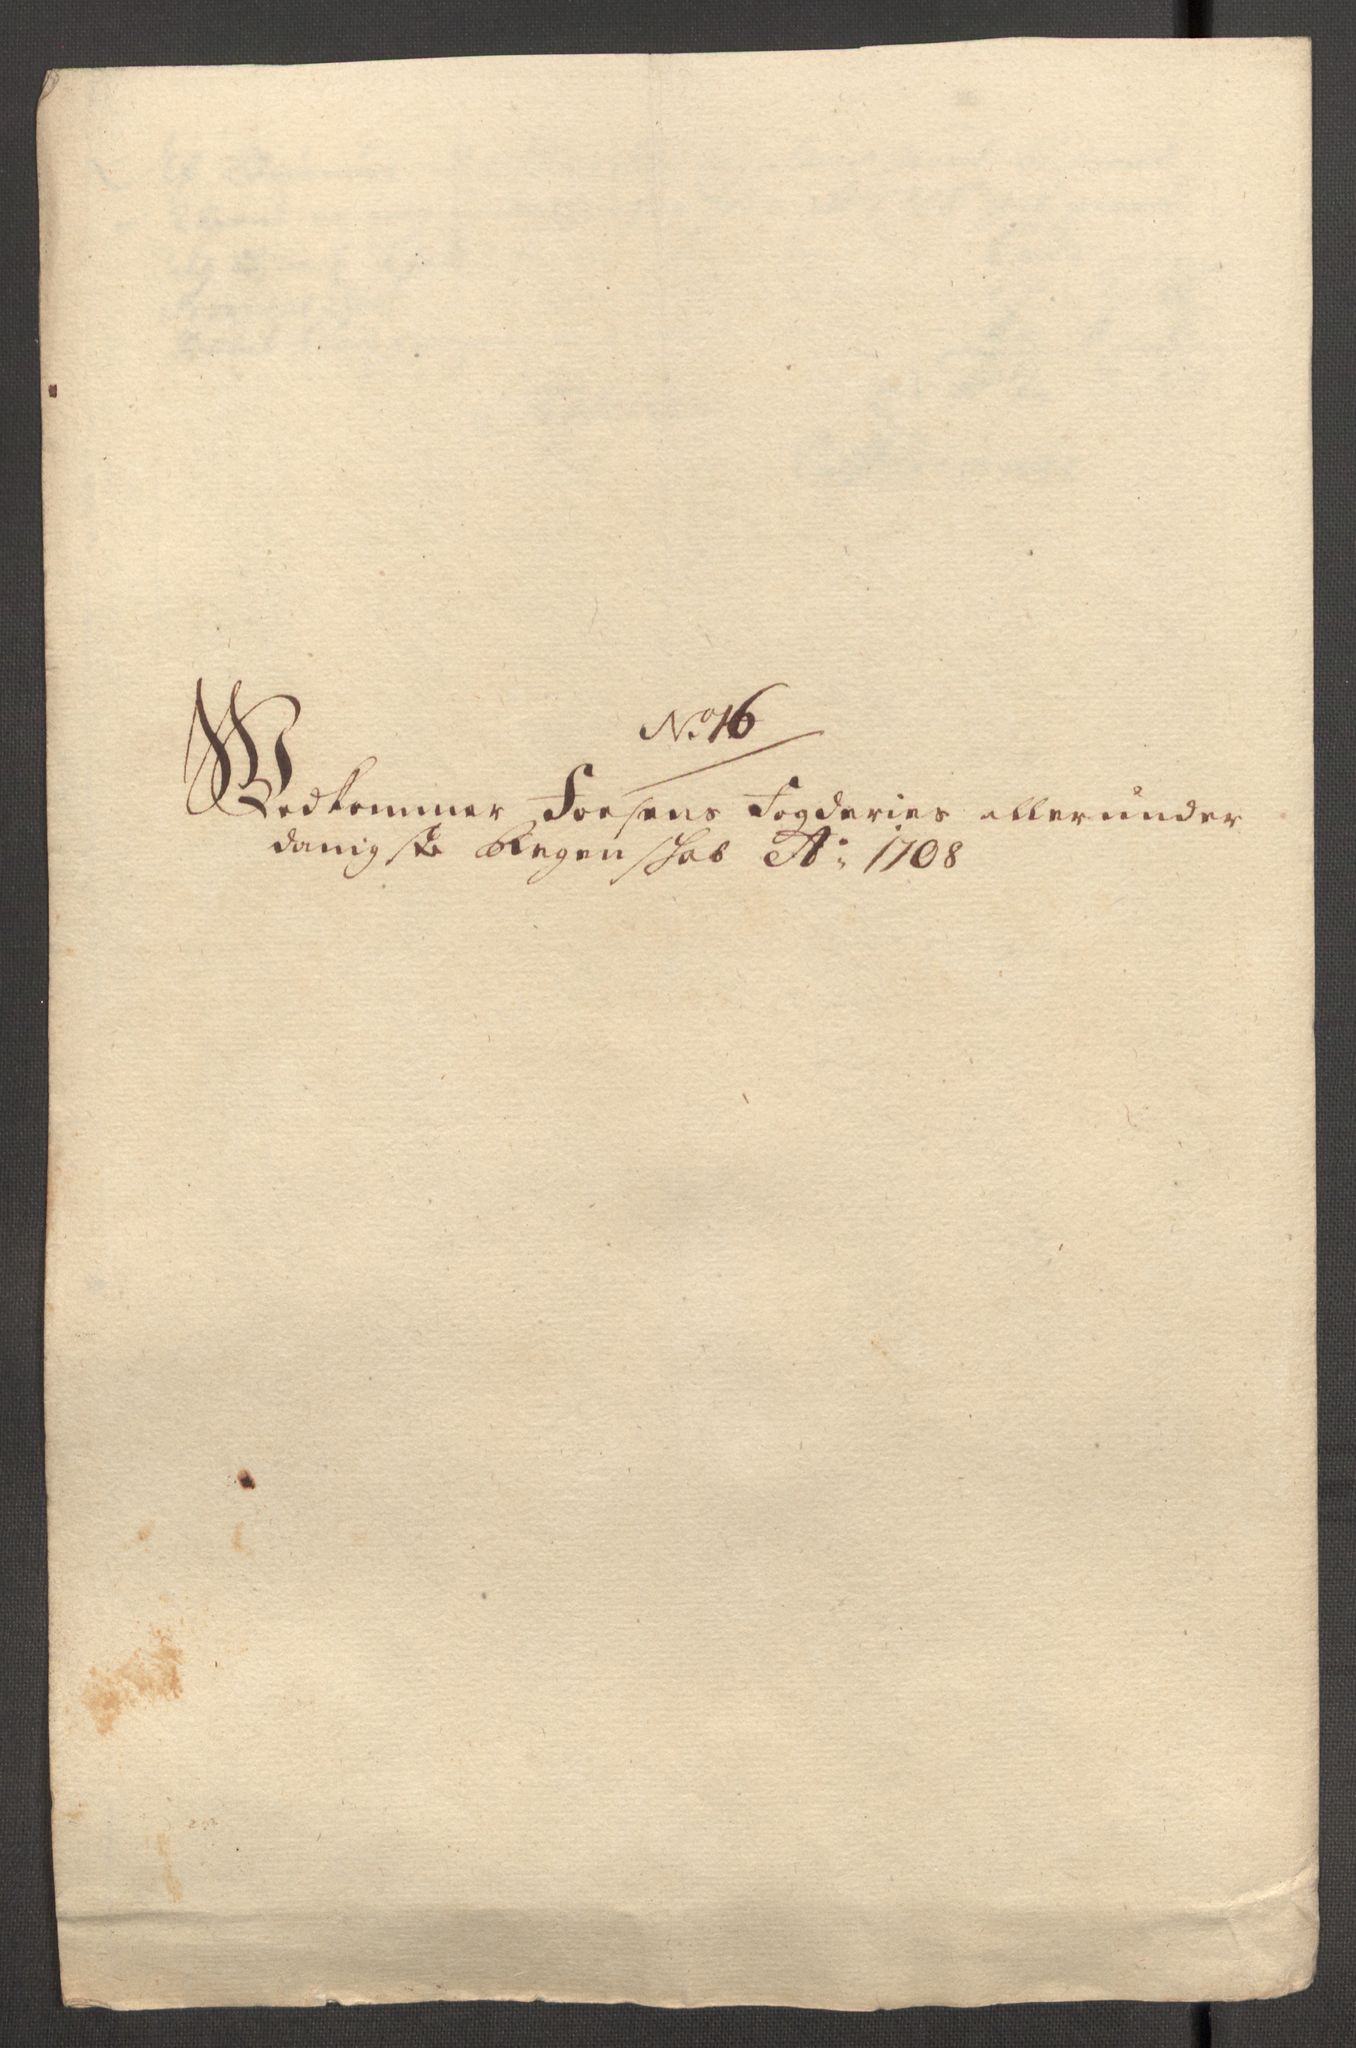 No 16
Wedkommer Foesens Fogderies allerunder
danigste Regenskab Ao: 1708